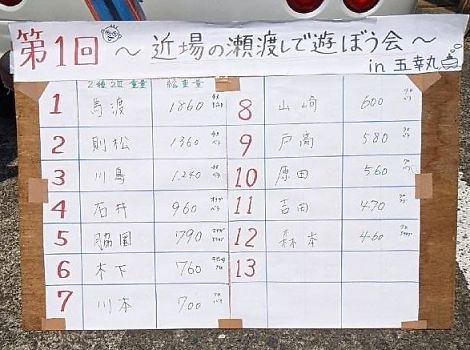 第1回 ～近場の瀬渡しで遊ぼう会～
in 五幸丸
2種2匹重量 総重量
1 馬渡 1860
2 則松 1360
3 川島 1,240
4 石井 960
5 脇園 790
6 木下 760
7 川本 700
8 山崎 600
9 戸高 580
10 原田 560
11 吉田 470
12 森本 460
13